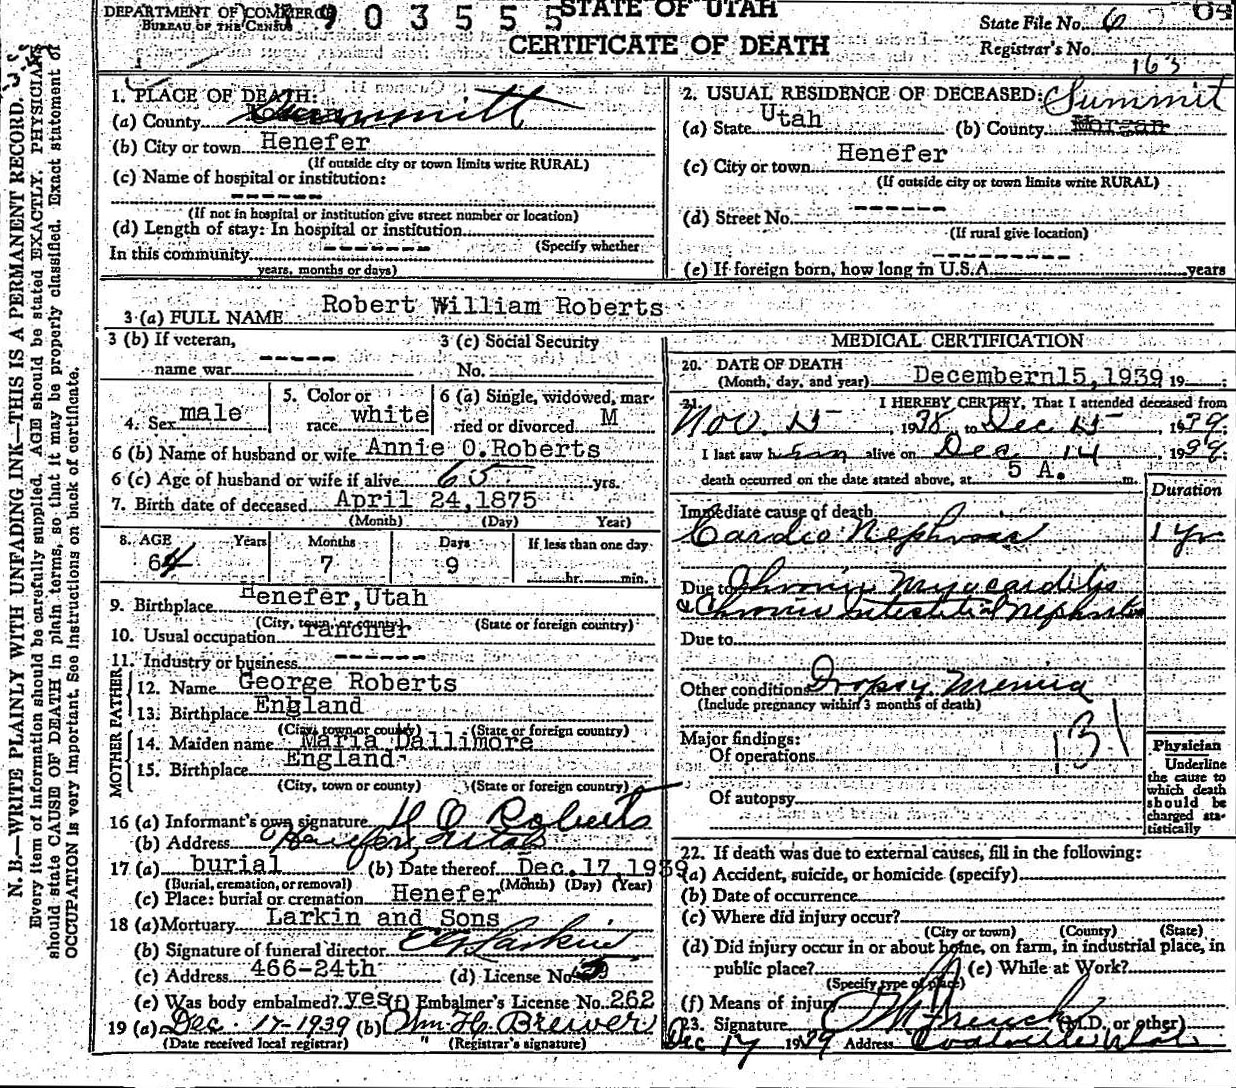 DEPARTMENT OF COMMERCE
BUREAU OF THE CENSUS
1903555
STATE OF UTAH
CERTIFICATE OF DEATH
State File No. 6
Registrar's No.
163
N. B.—WRITE PLAINLY WITH UNFADING INK—THIS IS A PERMANENT RECORD.
Every item of information should be carefully supplied. AGE should be stated EXACTLY. PHYSICIANS
should state CAUSE OF DEATH in plain terms, so that it may be properly classified. Exact statement of
OCCUPATION is very important. See instructions on back of certificate.
1. PLACE OF DEATH:
(a) County Summitt
(b) City or town Henefer
(If outside city or town limits write RURAL)
(c) Name of hospital or institution:
------
(If not in hospital or institution give street number or location)
(d) Length of stay: In hospital or institution
(Specify whether
In this community -------
years, months or days)
2. USUAL RESIDENCE OF DECEASED: Summit
(a) State Utah (b) County Morgan
(c) City or town Henefer
(If outside city or town limits write RURAL)
(d) Street No. ------
(If rural give location)
(e) If foreign born, how long in U.S.A. --------- years
3 (a) FULL NAME Robert William Roberts
3 (b) If veteran,
name war -----
3 (c) Social Security
No.
4. Sex male
5. Color or
race white
6 (a) Single, widowed, mar-
ried or divorced M
6 (b) Name of husband or wife Annie O.Roberts
6 (c) Age of husband or wife if alive 65 yrs.
7. Birth date of deceased April 24,1875
(Month) (Day) Year)
8. AGE Years Months Days If less than one day
64 7 9 hr. min.
9. Birthplace Henefer,Utah
(City, town or county) (State or foreign country)
10. Usual occupation rancher
11. Industry or business ------
FATHER
12. Name George Roberts
13. Birthplace England
(City, town or county) (State or foreign country)
MOTHER
14. Maiden name Maria Dallimore
15. Birthplace England
(City, town or county) (State or foreign country)
16 (a) Informant's own signature Roberts
(b) Address Henefer, Utah
17 (a) burial (b) Date thereof Dec.17,1939
(Burial, cremation, or removal) (Month) (Day) (Year)
(c) Place: burial or cremation Henefer
18 (a) Mortuary Larkin and Sons
(b) Signature of funeral director Larkin
(c) Address 466-24th (d) License No.
(e) Was body embalmed? yes (f) Embalmer's License No. 262
19 (a) Dec. 17-1939 (b) Wm. H. Brewer
(Date received local registrar) " (Registrar's signature)
MEDICAL CERTIFICATION
20. DATE OF DEATH
(Month, day, and year) Decembern15,1939 19 ;
21. I HEREBY CERTIFY, That I attended deceased from
Nov. 15 , 1938, to Dec 15 , 1939;
I last saw him alive on Dec 14 , 1939;
death occurred on the date stated above, at 5 A. m.
Duration
Immediate cause of death
Cardio Nephrosis 1 yr
Due to Chronic Myocarditis
& Chronic Interstitial Nephritis
Due to
Other conditions Dropsy
(Include pregnancy within 3 months of death)
Major findings:
Of operations
131
Of autopsy
Physician
Underline
the cause to
which death
should be
charged sta-
tistically
22. If death was due to external causes, fill in the following:
(a) Accident, suicide, or homicide (specify)
(b) Date of occurrence
(c) Where did injury occur?
(City or town) (County) (State)
(d) Did injury occur in or about home, on farm, in industrial place, in
public place? (e) While at Work?
(Specify type of place)
(f) Means of injury
23. Signature French (M.D. or other)
Dec 17 1939 Address Coalville Utah